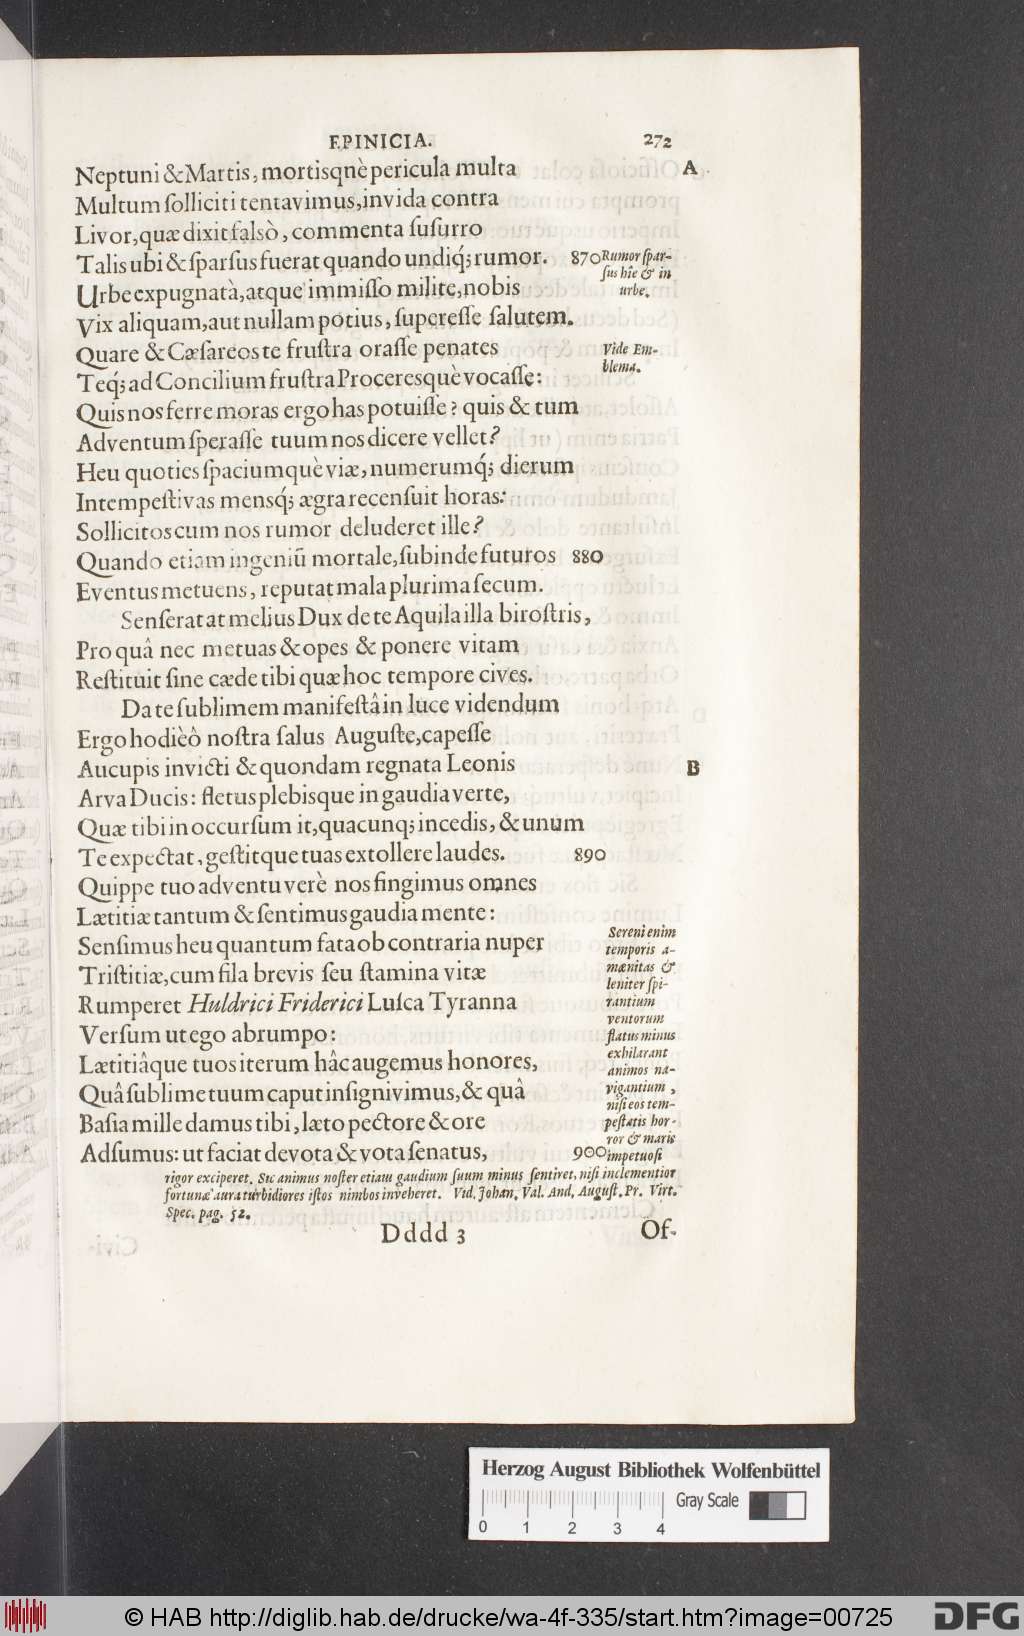 EPINICIA. 272
Neptuni & Martis, mortisqnè pericula multa A
Multum ſolliciti tentavimus, invida contra
Livor, quæ dixit falsò, commenta ſuſurro
Talis ubi & ſparſus fuerat quando undiq́; rumor. 870
Urbe expugnatà, atque immiſſo milite, nobis
Vix aliquam, aut nullam potius, ſupereſſe ſalutem.
Quare & Cæſareos te fruſtra oraſſe penates
Teq́; ad Concilium fruſtra Proceresquè vocaſſe:
Quis nos ferre moras ergo has potuiſſe? quis & tum
Adventum ſperaſſe tuum nos dicere vellet?
Heu quoties ſpaciumquè viæ, numerumq́; dierum
Intempeſtivas mensq́; ægra recenſuit horas:
Sollicitos cum nos rumor deluderet ille?
Quando etiam ingeniū mortale, ſubinde futuros 880
Eventus metuens, reputat mala plurima ſecum.
Senſerat at melius Dux de te Aquila illa biroſtris,
Pro quâ nec metuas & opes & ponere vitam
Reſtituit ſine cæde tibi quæ hoc tempore cives.
Da te ſublimem manifeſtâ in luce videndum
Ergo hodiè ô noſtra ſalus Auguſte, capeſſe
Aucupis invicti & quondam regnata Leonis B
Arva Ducis: fletus plebisque in gaudia verte,
Quæ tibi in occurſum it, quacunq; incedis, & unum
Te expectat, geſtitque tuas extollere laudes. 890
Quippe tuo adventu verè nos fingimus omnes
Lætitiæ tantum & ſentimus gaudia mente:
Senſimus heu quantum fata ob contraria nuper
Triſtitiæ, cum fila brevis ſeu ſtamina vitæ
Rumperet Huldrici Friderici Luſca Tyranna
Verſum ut ego abrumpo:
Lætitiâque tuos iterum hâc augemus honores,
Quâ ſublime tuum caput inſignivimus, & quâ
Baſia mille damus tibi, læto pectore & ore
Adſumus: ut faciat devota & vota ſenatus, 900
Rumor ſpar-
ſus hîc & in
urbe.
Vide Em-
blema.
Sereni enim
temporis a-
mœnitas &
leniter ſpi-
rantium
ventorum
flatus minus
exhilarant
animos na-
vigantium,
niſi eos tem-
peſtatis hor-
ror & maris
impetuoſi
rigor exciperet. Sic animus noſter etiam gaudium ſuum minus ſentiret, niſi inclementior
fortunæ aura turbidiores iſtos nimbos inveheret. Vid. Johan. Val. And. Auguſt. Pr. Virt.
Spec. pag. 52.
Dddd 3 Of-
Herzog August Bibliothek Wolfenbüttel
Gray Scale
0 1 2 3 4
© HAB http://diglib.hab.de/drucke/wa-4f-335/start.htm?image=00725
DFG